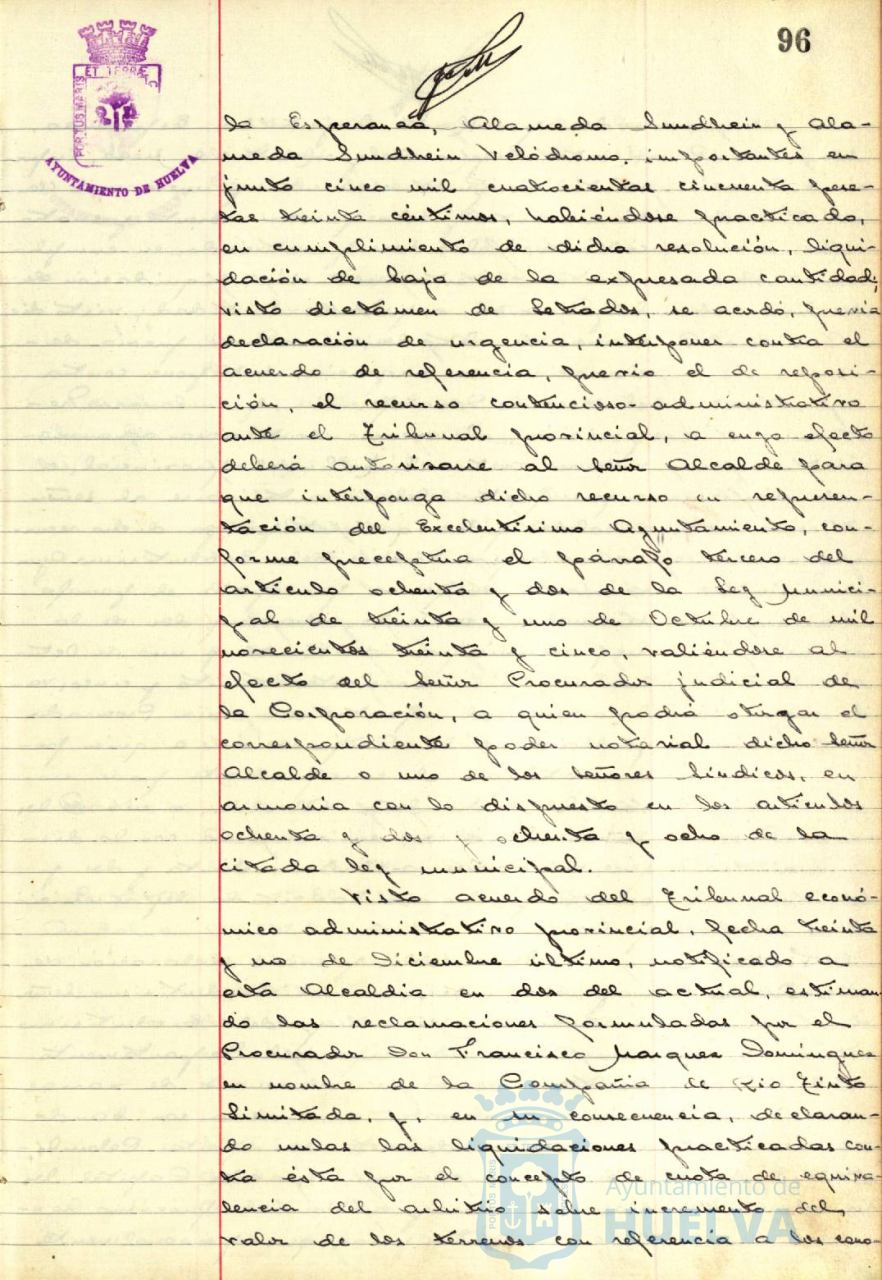 96
ET TERRÆ C
PORTUS MARIS
AYUNTAMIENTO DE HUELVA
la Esperanza, Alameda Sundhein y Ala-
meda Sundhein Velódromo, importantes en
junto cinco mil cuatrocientas cincuenta pese-
tas treinta céntimos, habiéndose practicado,
en cumplimiento de dicha resolución, liqui-
dación de baja de la expresada cantidad;
visto dictamen de Letrados, se acordó, previa
declaración de urgencia, interponer contra el
acuerdo de referencia, previo el de reposi-
ción, el recurso contencioso-administrativo
ante el Tribunal provincial, a cuyo efecto
deberá autorisarse al Señor Alcalde para
que interponga dicho recurso en represen-
tación del Excelentísimo Ayuntamiento, con-
forme preceptua el párrafo tercero del
artículo ochenta y dos de la Ley Munici-
pal de treinta y uno de Octubre de mil
novecientos treinta y cinco, valiéndose al
efecto del Señor Procurador judicial de
la Corporación, a quien podrá otorgar el
correspondiente poder notarial dicho Señor
Alcalde o uno de los Señores Síndicos, en
armonia con lo dispuesto en los artículos
ochenta y dos y ochenta y ocho de la
citada ley municipal.
Visto acuerdo del Tribunal econó-
mico administrativo provincial, fecha treinta
y uno de Diciembre último, notificado a
esta Alcaldía en dos del actual, estiman-
do las reclamaciones formuladas por el
Procurador Don Francisco Marquez Domínguez
en nombre de la Compañia de Rio Tinto
Limitada, y, en su consecuencia, declaran-
do nulas las liquidaciones practicadas con-
tra ésta por el concepto de cuota de equiva-
lencia del arbitrio sobre incremento del
valor de los terrenos con referencia a los cono-
Ayuntamiento de
HUELVA